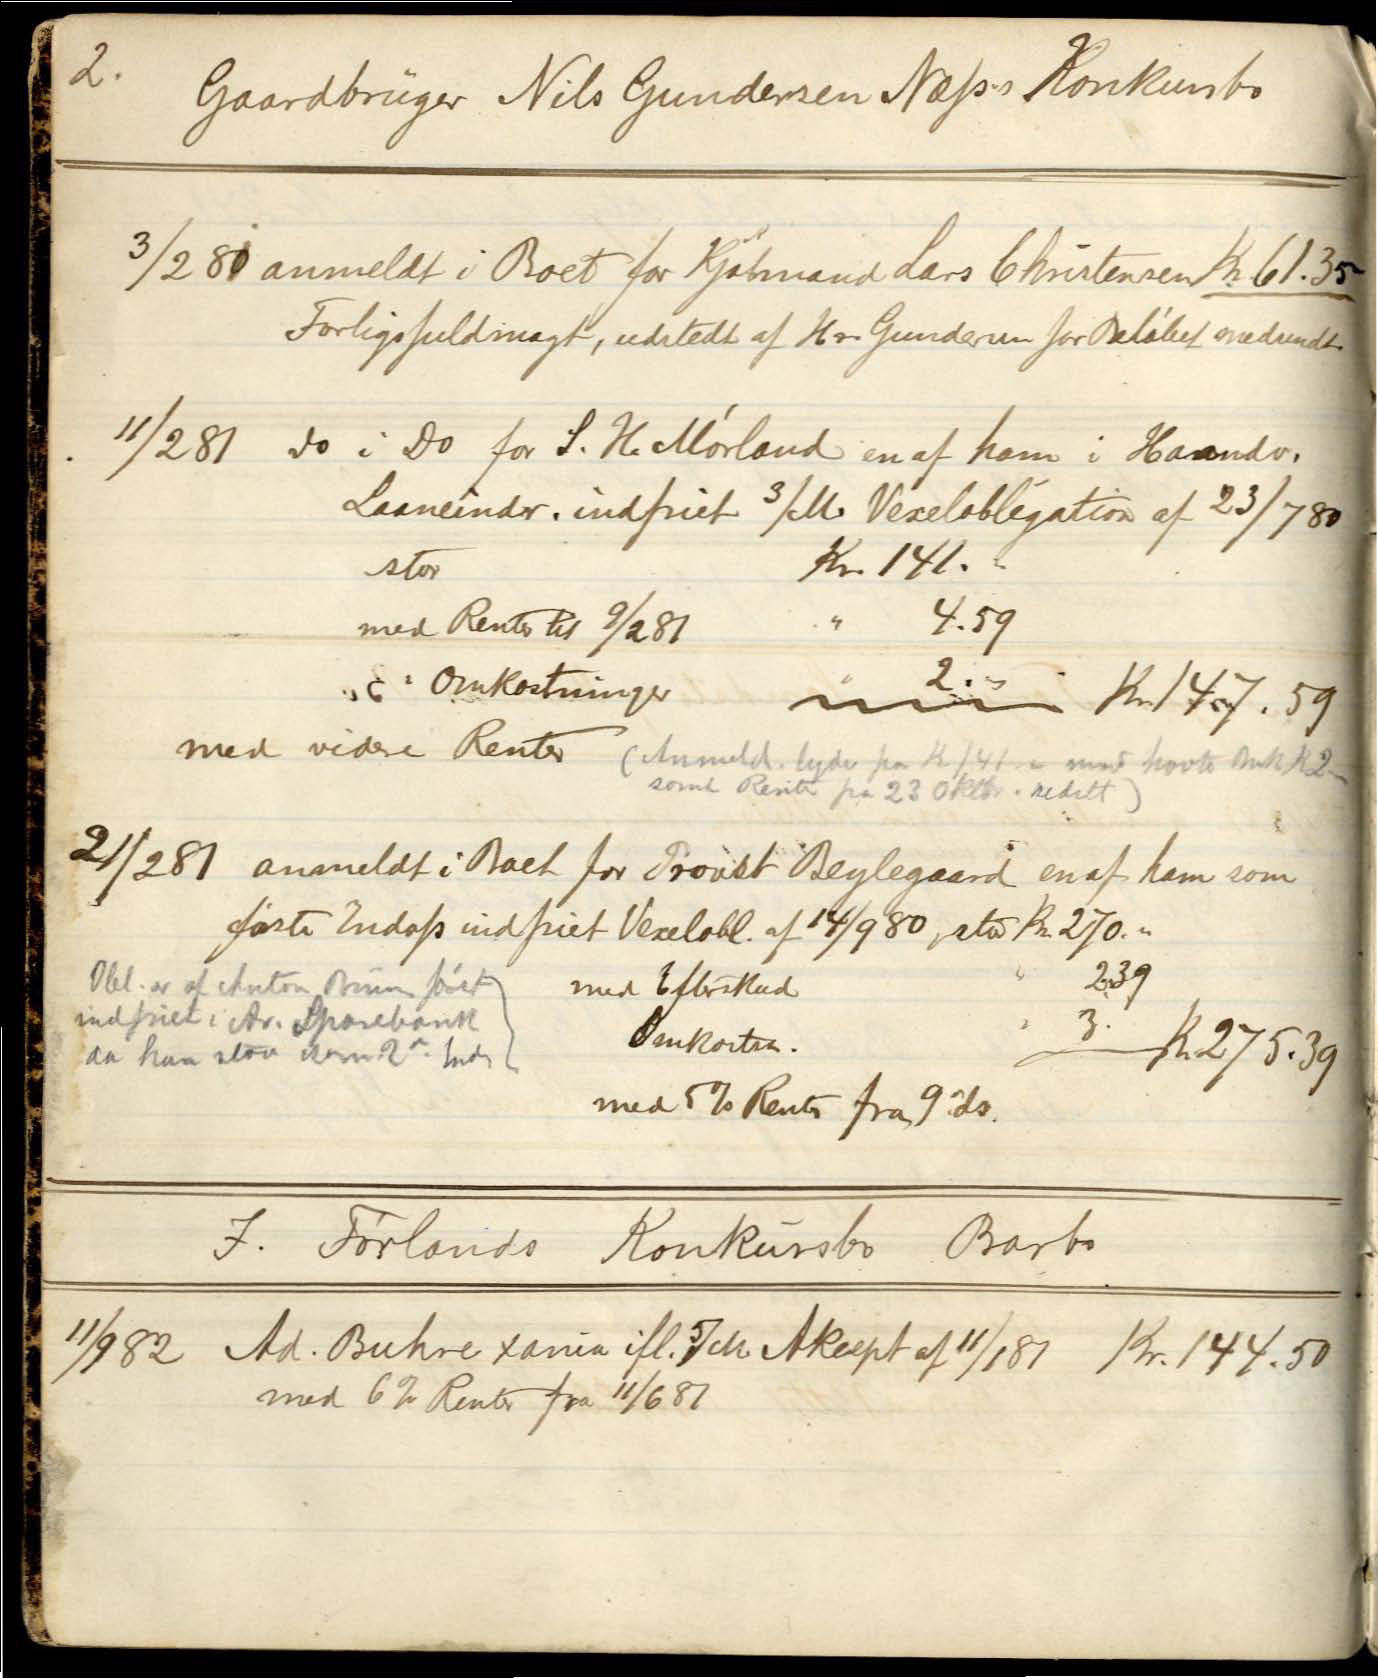 2.
Gaardbrüger Nils Gundersen Næss's Konkursbo
3/2 81 anmeldt i Boet for Kjøbmand Lars Christensen Kr 61.35
Forligsfuldmagt, udstedt af Hr Gundersen for Beløbet medsendt.
11/2 81 do i Do for S. H. Mørland en af ham i Haandv.
Laaneindr. indfriet 3/M. Vexelobligation af 23/7 80
stor Kr. 141. "
med Renter til 9/2 81 " 4.59
" Omkostninger " 2. " Kr 147.59
med videre Renter (Anmeld. lyder paa Kr 141 " med Omk K 2 "
samt Renter fra 23 Oktbr.)
21/2 81 anmeldt i Boet for Provst Beylegaard en af ham som
første Endoss indfriet Vexelobl. af 14/9 80, stor Kr. 270. "
Obl. er af Anton Bruun først
indfriet i Ar. Sparebank
da han stod som 2n. Ind.
med Efterskud " 2.39
Omkostn. " 3. Kr. 275.39
med 5% Renter fra 9 ds.
J. Førlands Konkursbo Barbo
11/9 82 Ad. Buhre Xania ifl. 5/M. Akcept af 11/1 81 Kr. 144.50
med 6% Renter fra 11/6 81